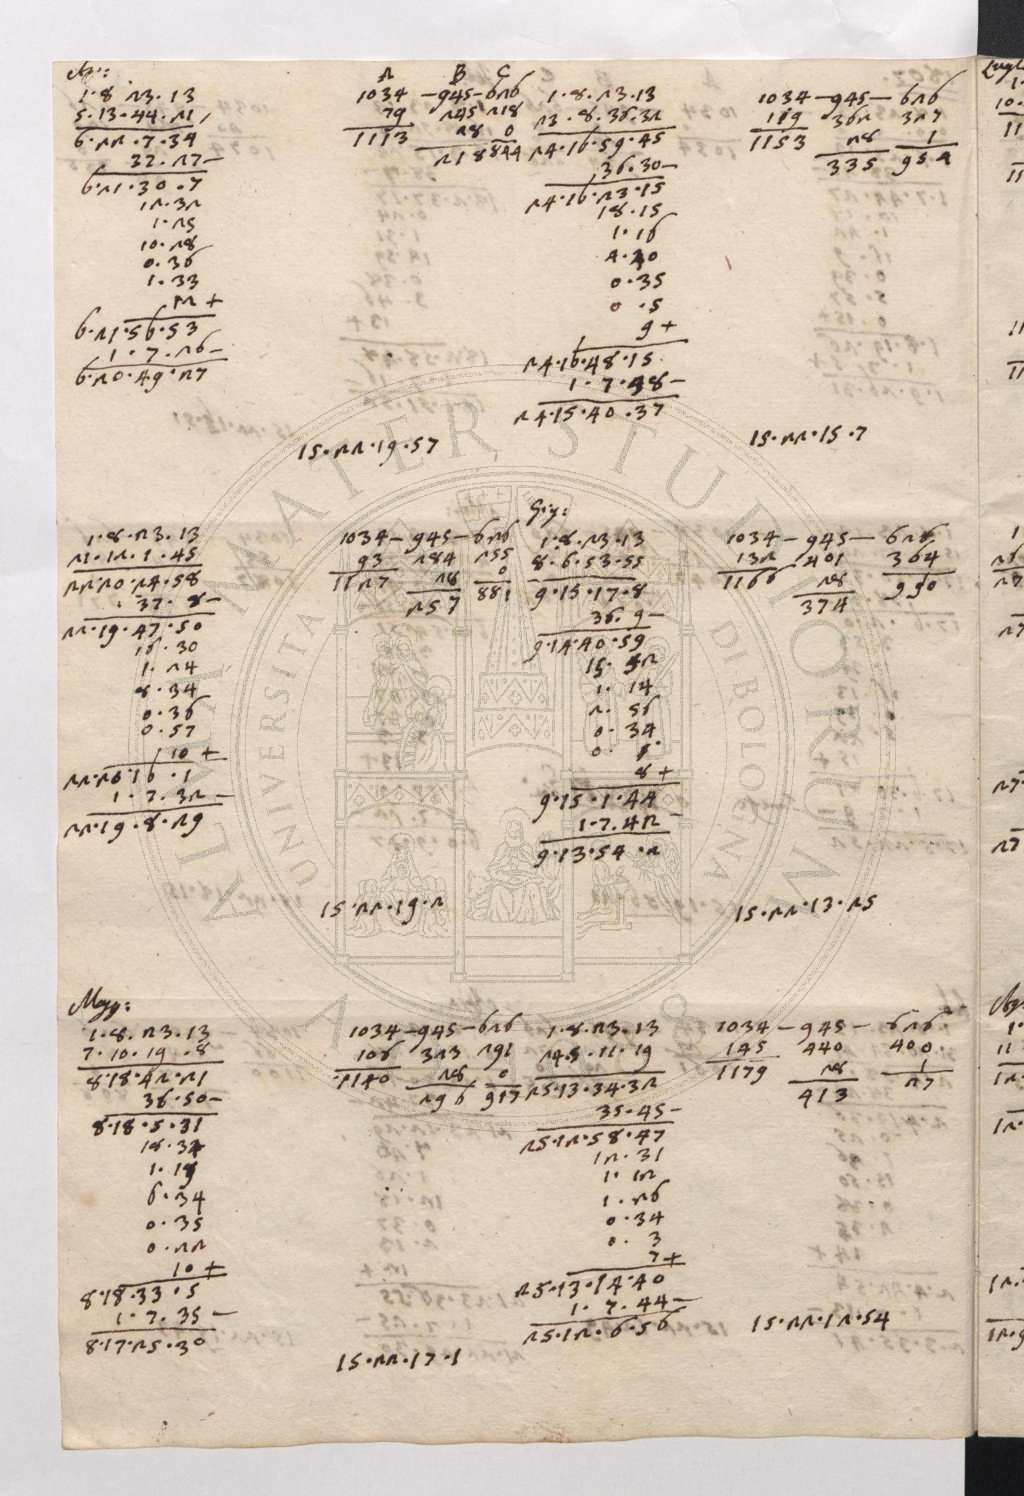 Apr:
1.8.23.13
5.13.44.21
6.22.7.34
37.27 –
6.21.30.7
12.32
1.25
10.28
0.36
1.33
12 +
6.21.56.53
1.7.26 –
6.20.49.27
A B C
1034 – 945 – 626
79 245 218
1113 28 0
218 844
1.8.23.13
23.8.36.32
24.16.59.45
36.30 –
24.16.23.15
18.15
1.16
4.40
0.35
0.5
9 +
24.16.48.15
1.7.38 –
24.15.40.37
1034 – 945 – 626
119 362 327
1153 28 1
335 954
15.22.19.57
15.22.15.7
1.8.23.13
21.12.1.45
22.20.24.58
37.8 –
22.19.47.50
16.30
1.24
8.34
0.36
0.57
10 +
22.20.16.1
1.7.32 –
22.19.8.29
1034 – 945 – 626
93 284 255
1127 28 0
257 881
Giu:
1.8.23.13
8.6.53.55
9.15.17.8
36.9 –
9.14.40.59
15.52
1.14
2.56
0.34
0.1
8 +
9.15.1.44
1.7.42 –
9.13.54.2
1034 – 945 – 626
132 401 364
1166 28
374 990
15.22.19.2
15.22.13.25
Magg:
1.8.23.13
7.10.19.8
8.18.42.21
36.50 –
8.18.5.31
18.34
1.19
6.34
0.35
0.22
10 +
8.18.33.5
1.7.35 –
8.17.25.30
1034 – 945 – 626
106 323 291
1140 28 0
296 917
1.8.23.13
24.5.11.19
25.13.34.32
35.45 –
25.12.58.47
12.31
1.12
1.26
0.34
0.3
7 +
25.13.14.40
1.7.44 –
25.12.6.56
1034 – 945 – 626
145 440 400
1179 28 1
413 27
15.22.17.1
15.22.12.54
ALMA MATER STUDIORUM
UNIVERSITA DI BOLOGNA